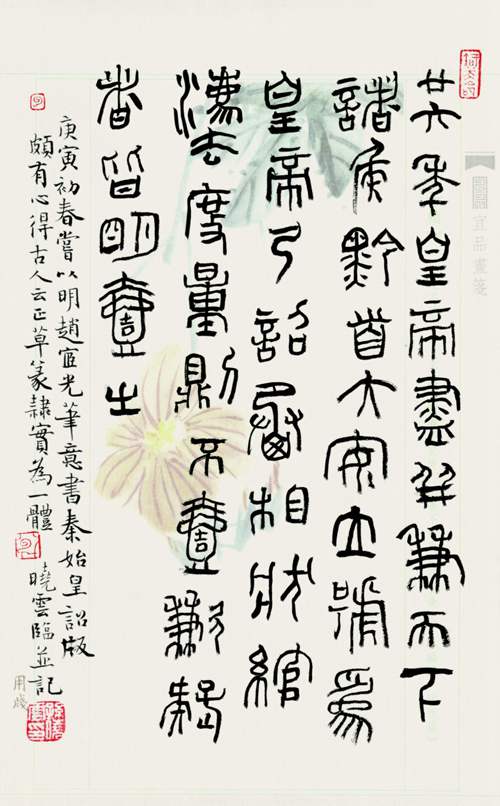 廿六年皇帝盡并兼天下
諸侯黔首大安立號爲
皇帝乃詔丞相狀綰
灋度量則不壹歉疑
者皆明壹之
庚寅初春嘗以明趙宧光筆意書秦始皇詔版
頗有心得古人云正草篆隸實為一體 曉雲臨並記
宜品畫箋
用箋